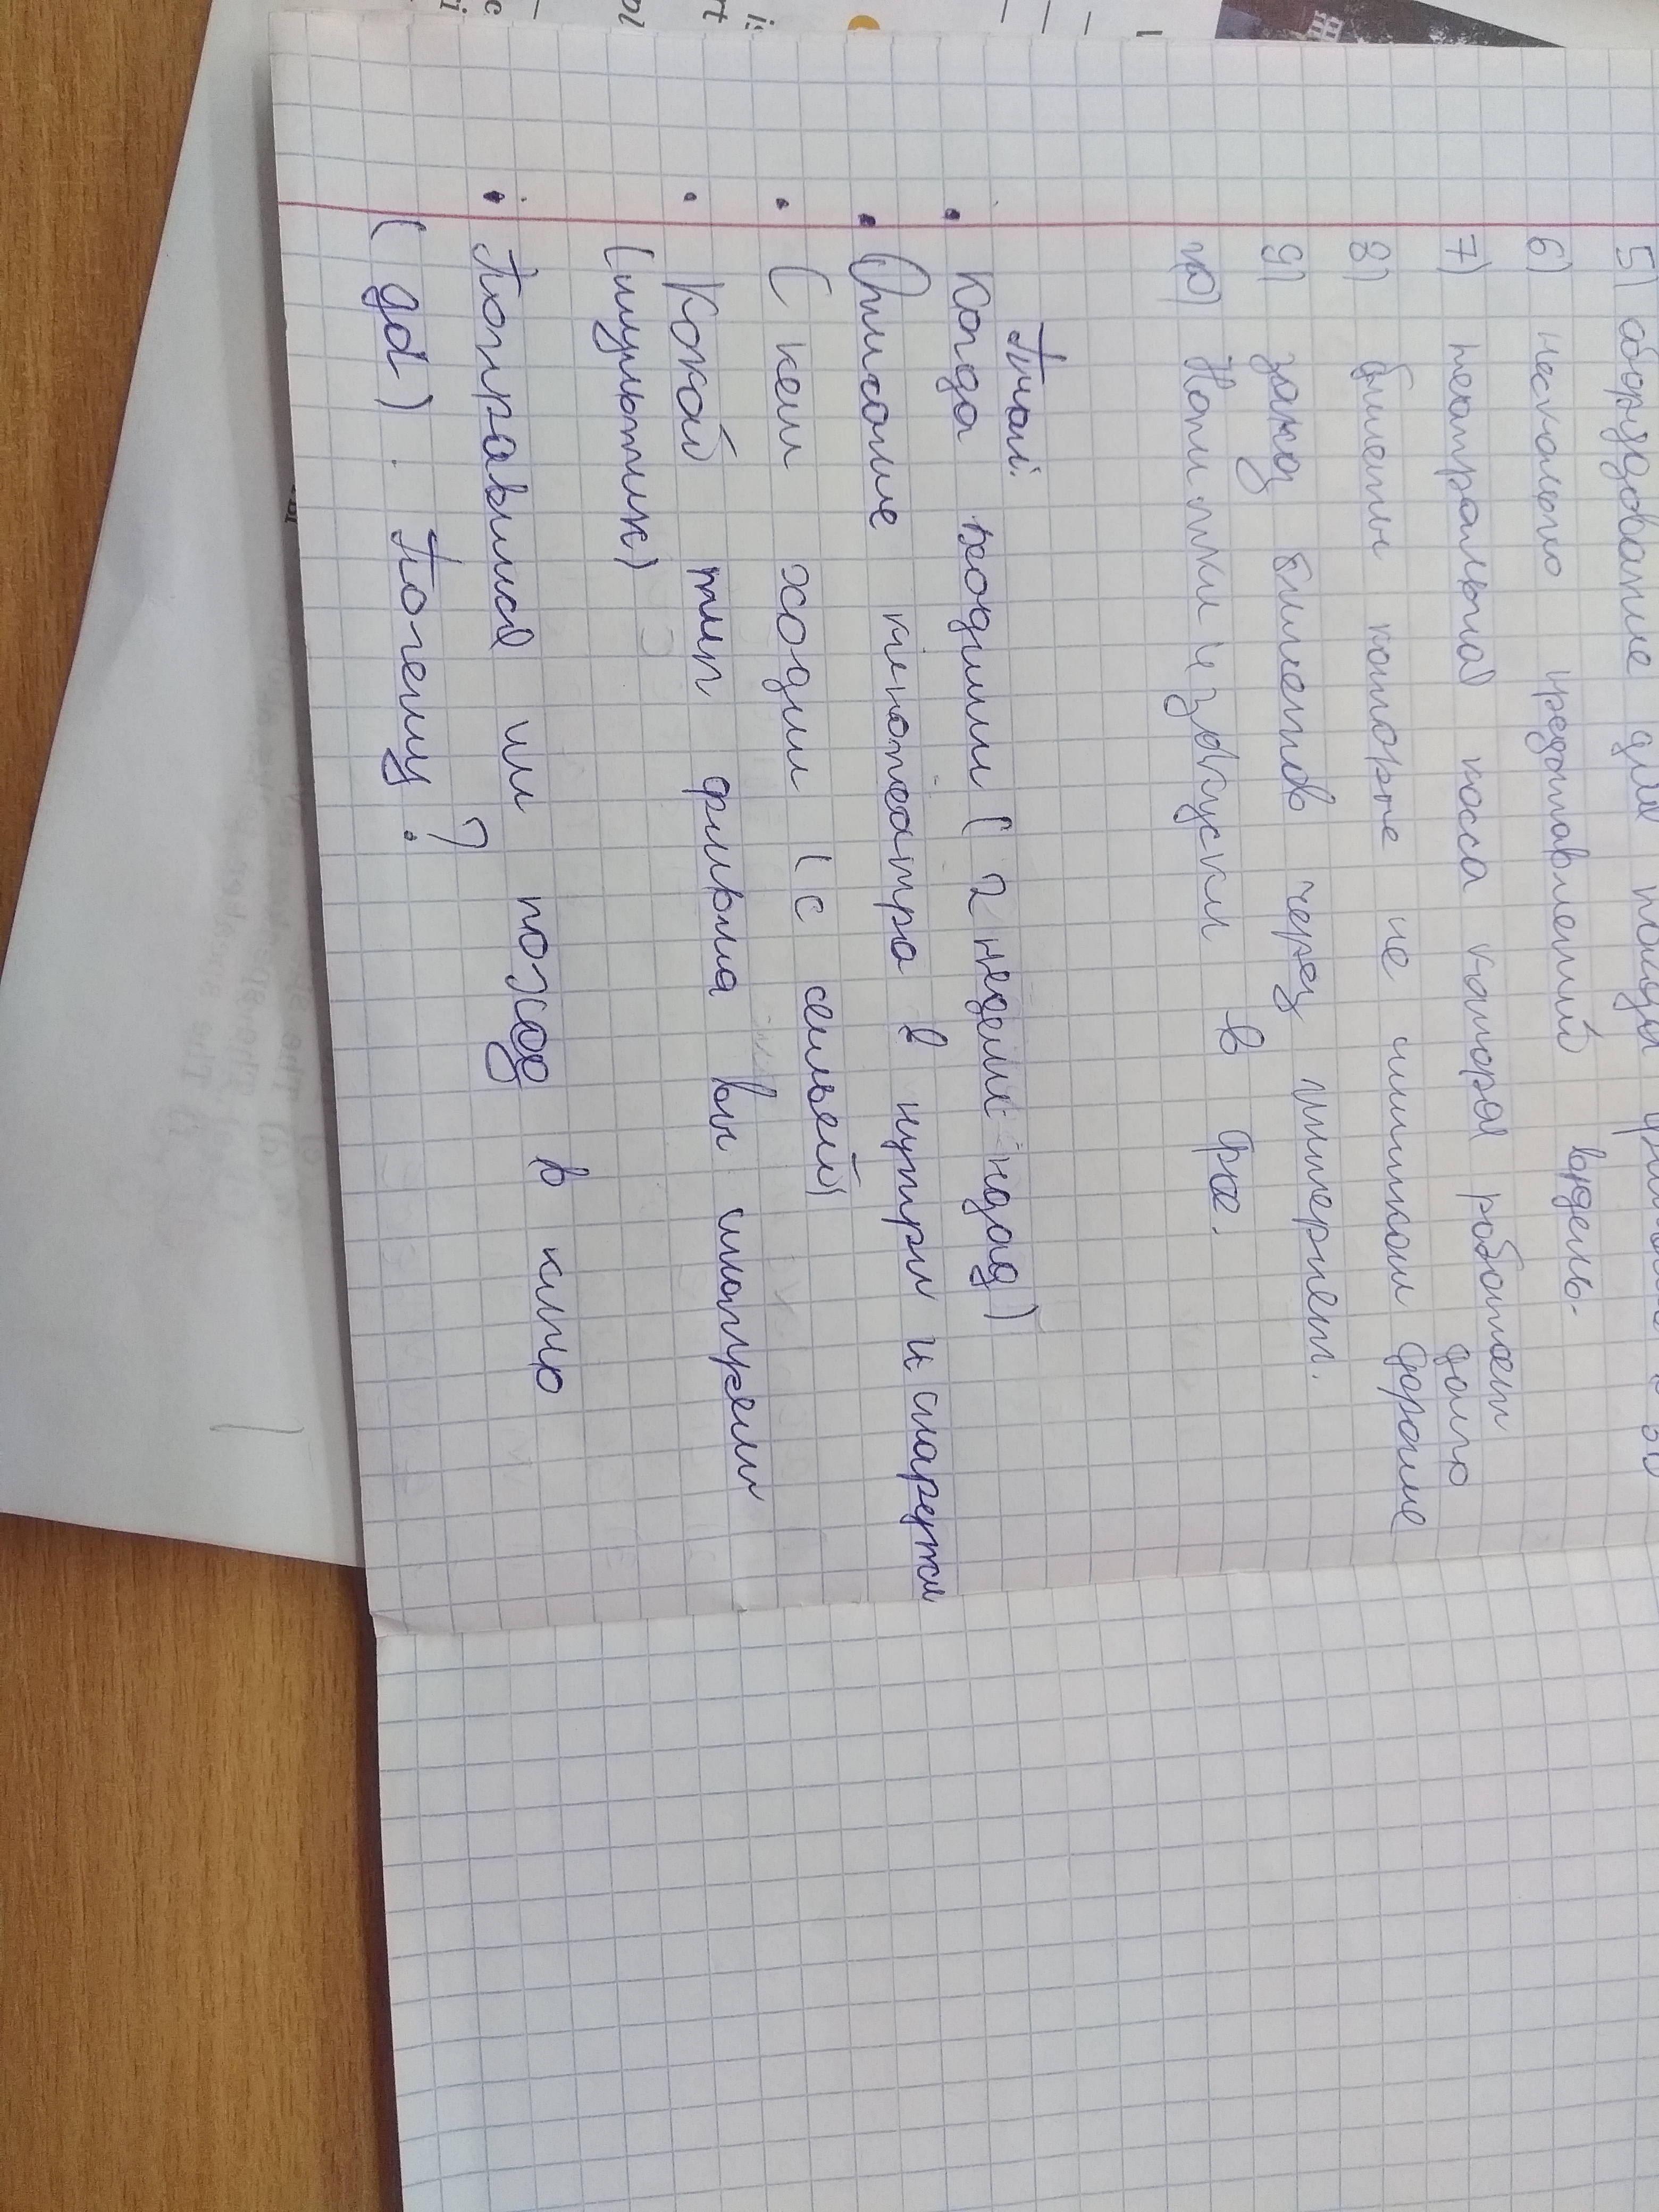 5) оборудование для показа
6) несколько представлений вдень.
7) театральная касса каторая работает
долго
8) билеты которые не слишком дорогие
9) заказ билетов через интернет.
10) Напитки и закуски в фае.
План:
Когда ходили (2 недели назад)
Описание кинотеатра в нутри и снаружи
(с кем ходил (с семьей)
Какой тип фильма вы смотрели
(мультик)
Понравился ли поход в кино
?
(да). Почему?